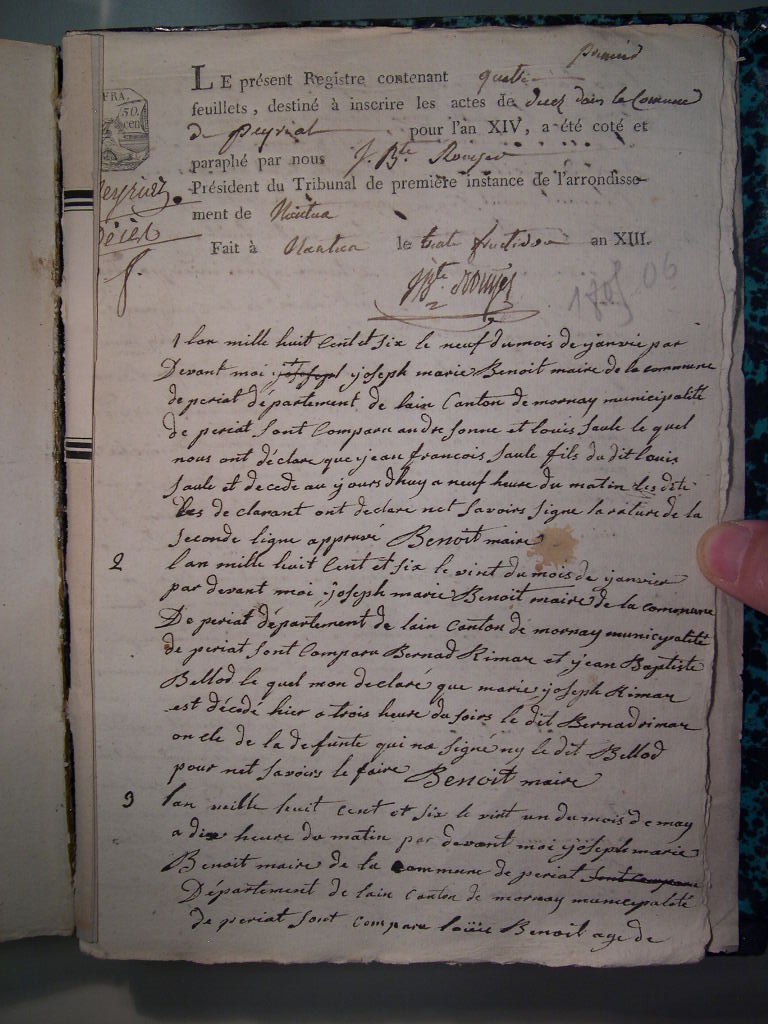 premier
LE présent Registre contenant quatre
feuillets, destiné à inscrire les actes de decez dans la Commune
de peyriat pour l'an XIV, a été coté et
paraphé par nous J. Bte Rouyer
Président du Tribunal de première instance de l'arrondisse-
ment de Nantua
Fait à Nantua le trente fructidor an XIII.
JBte Rouyer
1805 06
FRA.
50.
cen
peyriat
Décès
1 lan mille huit cent et six le neuf du mois de janvie par
Devant moi joseph marie Benoit maire de la commune
de periat département de lain Canton de mornay municipalité
de periat sont Comparu andre sonne et louis saule le quel
nous ont déclare que jean francois saule fils du dit louis
saule et decede au jourdhuy a neuf heure du matin les dite
de clarant ont declare net savoirs signe la rature de la
seconde ligne approuvé Benoit maire
2 lan mille huit Cent et six le vint du mois de janvier
par devant moi joseph marie Benoit maire de la commune
De periat département de lain Canton de mornay municipalité
de periat sont Comparu Bernad Rimar et jean Baptiste
Bellod le quel mon declaré que marie joseph Rimar
est décédé hier a trois heure du soirs le dit Bernad rimar
oncle de la defunte qui na signé ny le dit Bellod
pour net savoirs le faire Benoit maire
3 lan meille huit cent et six le vint un du mois de may
a dix heure du matin par devant moi joseph marie
Benoit maire de la commune de periat sont comparu
Département de lain Canton de mornay municipalité
de periat sont comparu louis Benoit age de